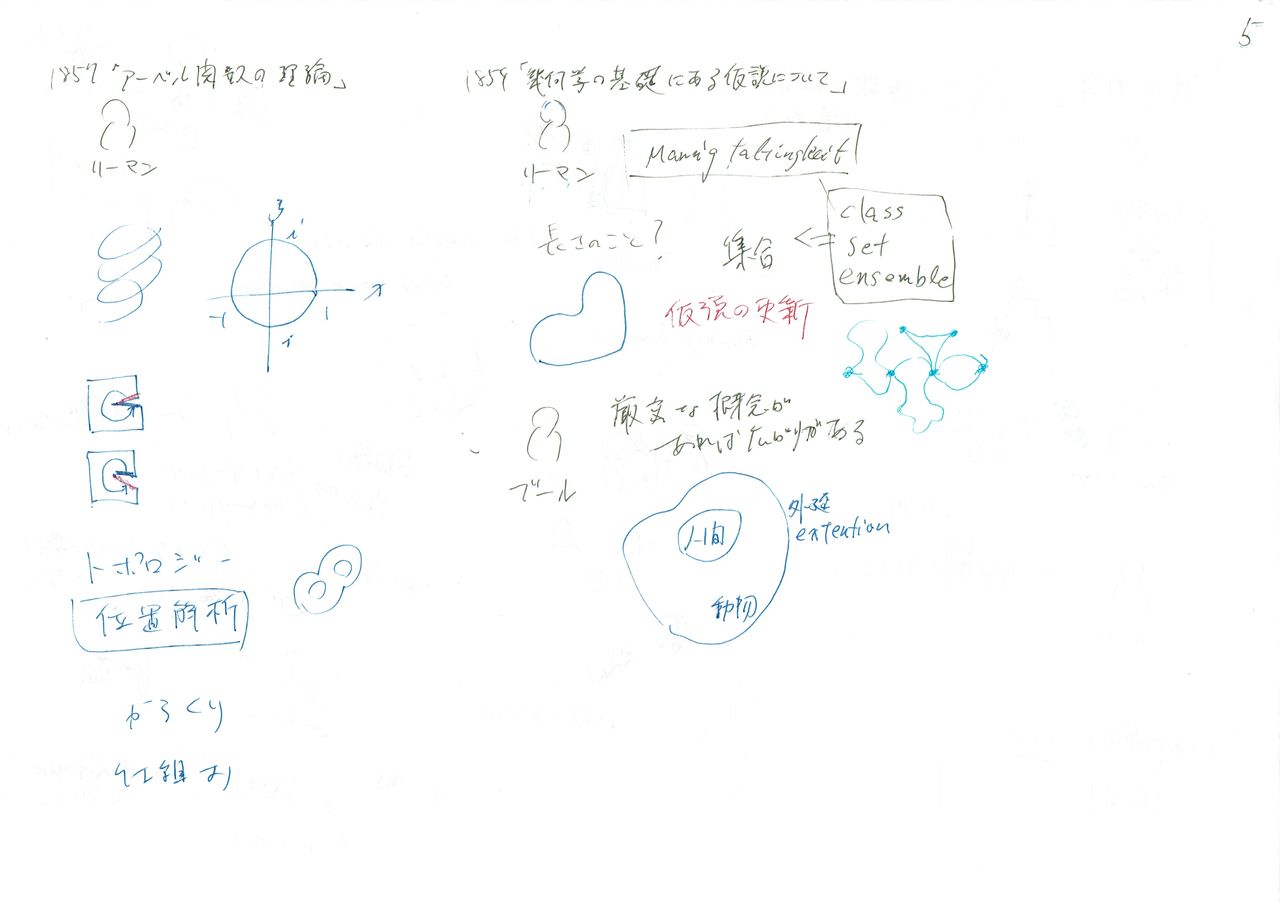 5
1857「アーベル関数の理論」
リーマン
y
i
-1
1
x
i
トポロジー
位置解析
からくり
仕組み
1854「幾何学の基礎にある仮説について」
リーマン
長さのこと?
集合 <=
class
set
ensemble
の更新
ブール
厳密な概念が
あれば広がりがある
人間
動物
外延
extention